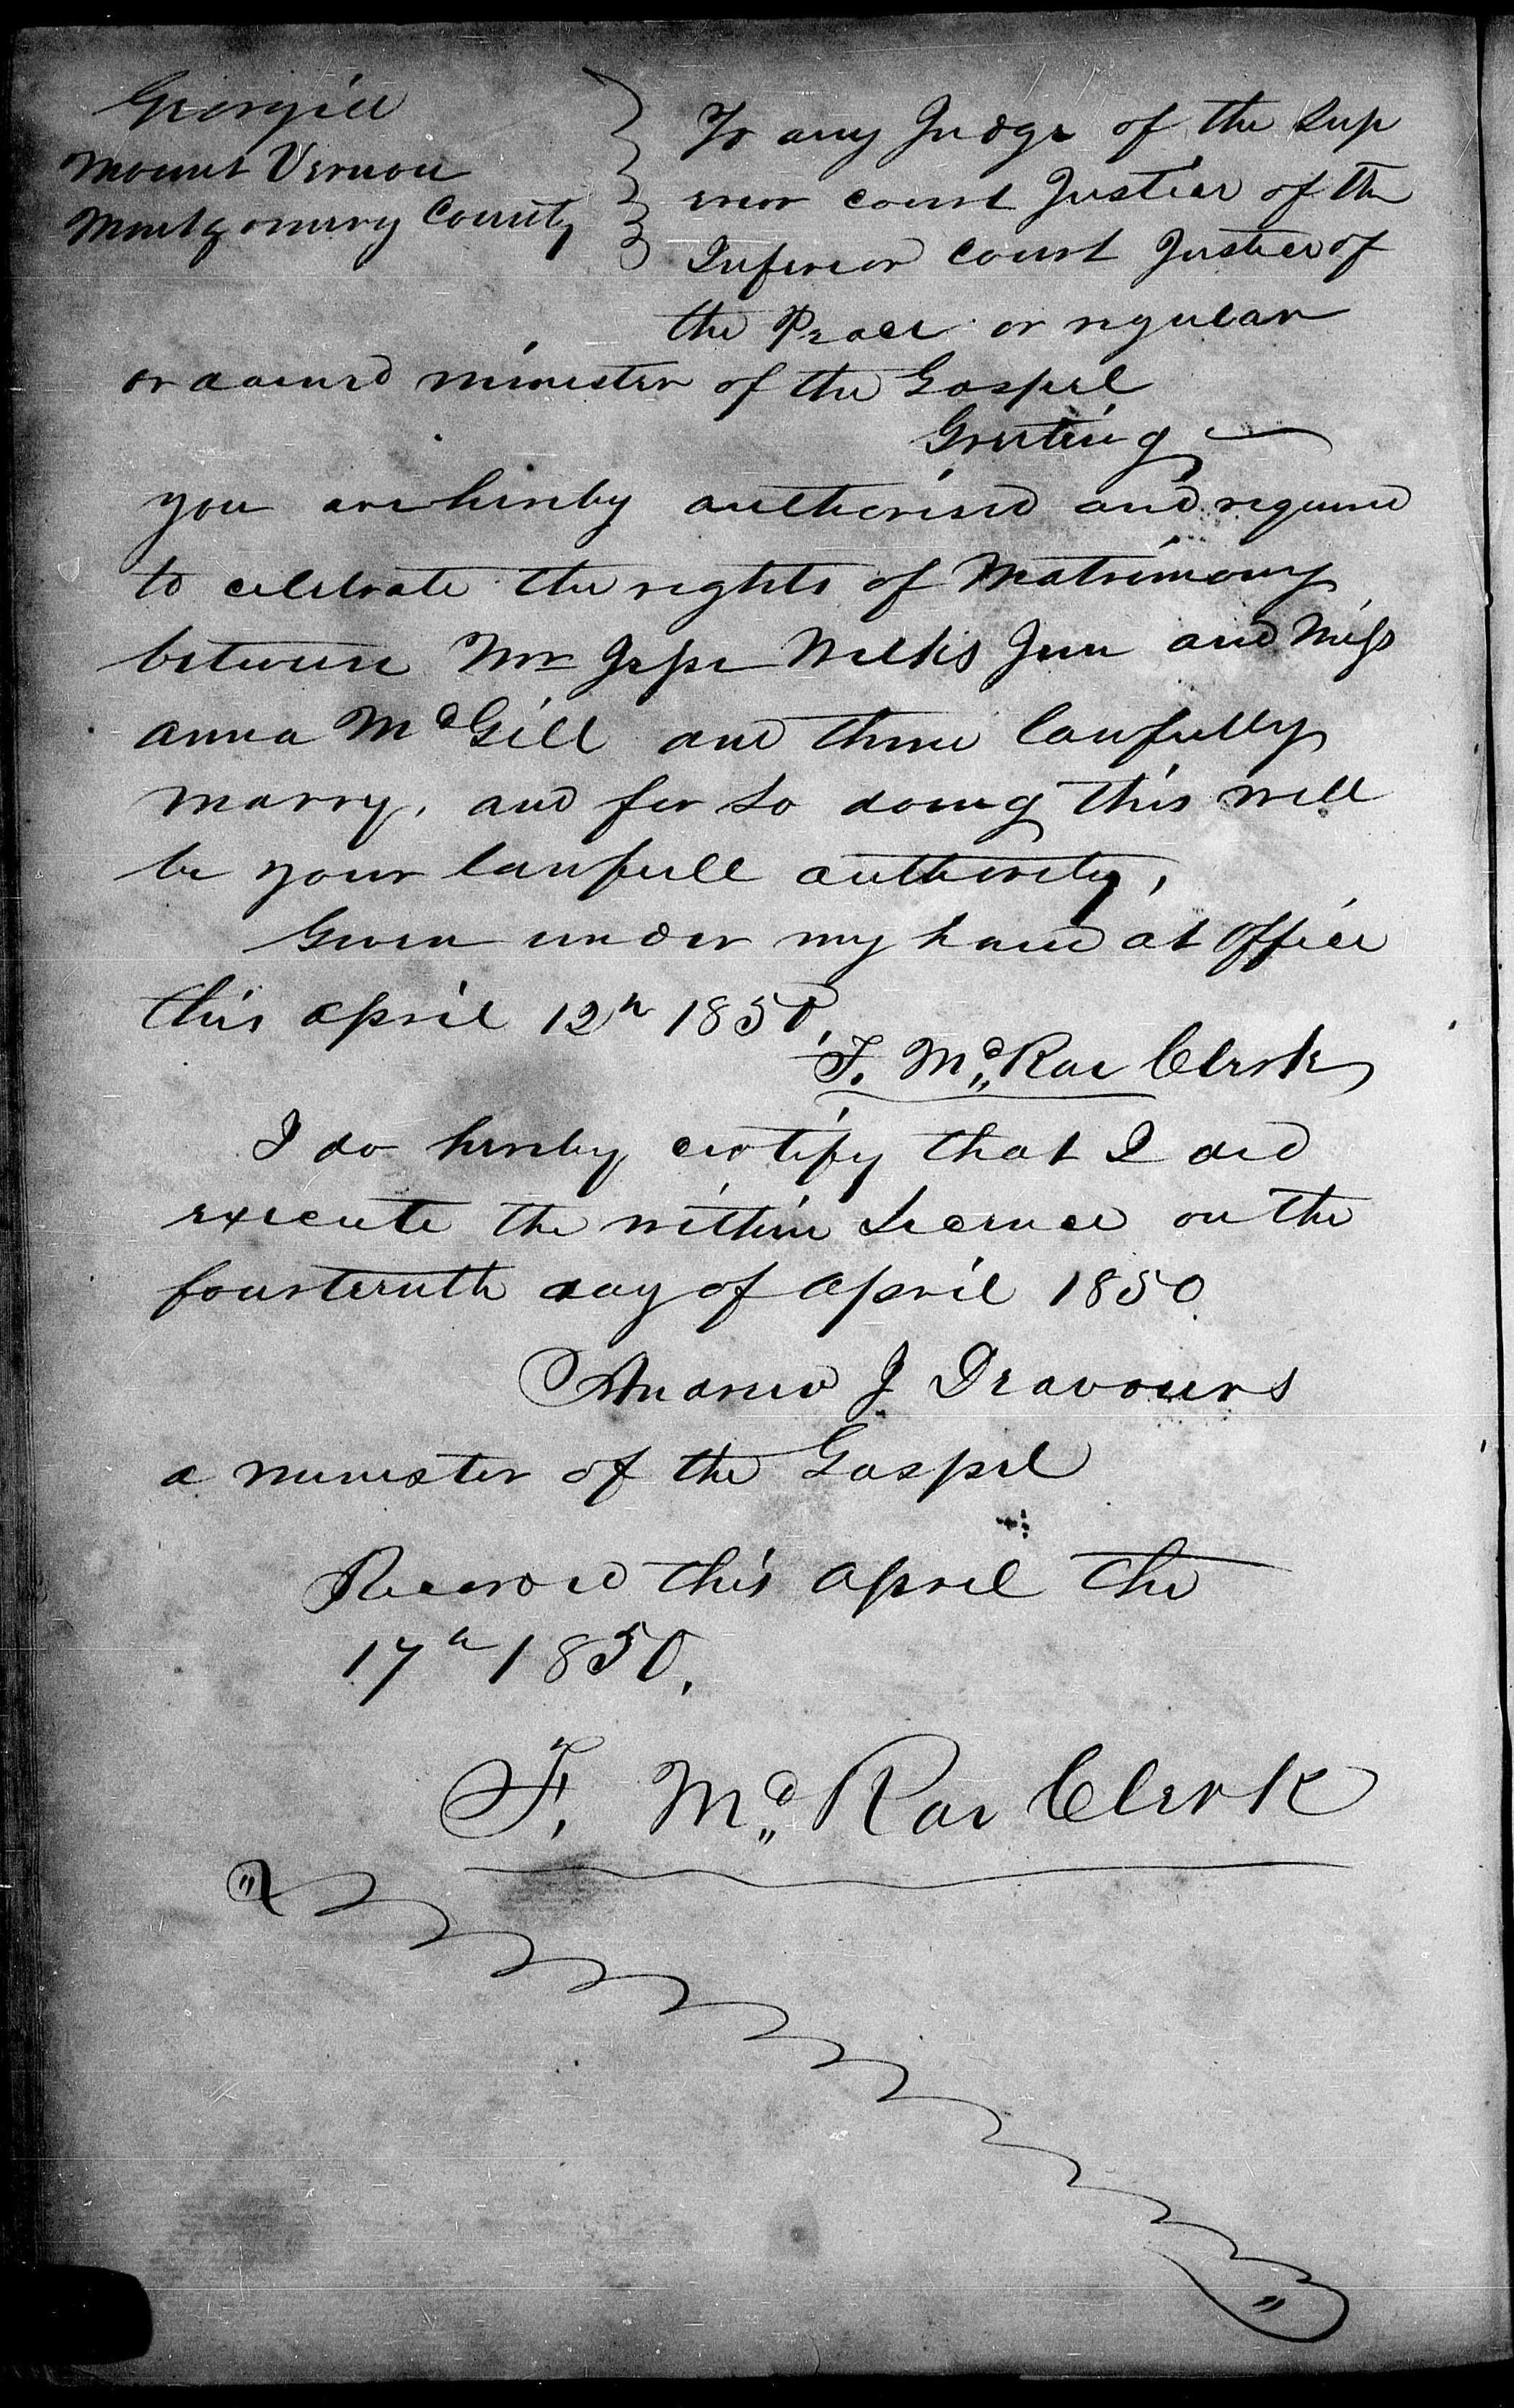 Georgia
Mount Vernon
Montgomery County
To any Judge of the Sup
erior court Justice of the
Inferior court Justice of
the Peace or regular
ordained minister of the Gospel
Greeting
you are hereby authorised and required
to celebrate the rights of Matrimony
between Mr Jesse Wilkes Jun and Miss
anna McGill and them lawfully
marry, and for so doing this will
be your lawfull authority,
Given under my hand at office
this april 12th 1850,
F. McRae Clerk
I do hereby certify that I did
execute the within Licence on the
fourteenth day of april 1850
Andrew J
a minister of the Gospel
Record this april the
17th 1850,
F. McRae Clerk